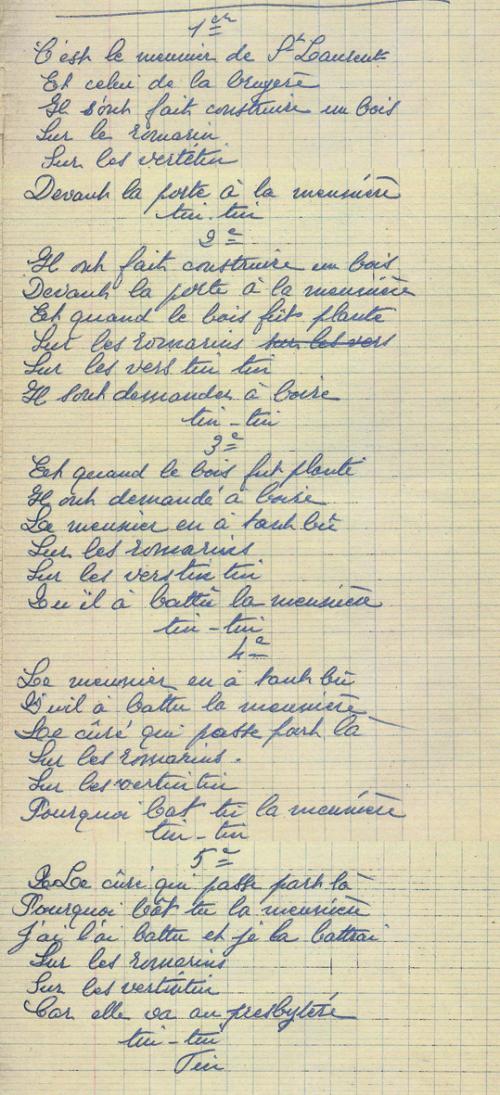 1er
C'est le meunier de St Laurent
Et celui de la bruyère
Il s'ont fait construire un bois
Sur le romarin
Sur les vertétin
Devant la porte à la meunière
tin-tin
2e
Il ont fait construire un bois
Devant la porte à la meunière
Et quand le bois fût planté
Sur les romarins sur les vers
Sur les vers tin tin
Il sont demander à boire
tin-tin
3e
Eet quand le bois fut planté
Il ont demandé à boire
Le meunier en à tant bû
Sur les romarins
Sur les vers tin tin
Qu'il à battû la meunière
tin-tin
4e
Le meunier en à tant bû
Qu'il à battu la meunière
Le cûré qui passe part là
Sur les romarins.
Sur les vertintin
Pourquoi bat tu la meunière
tin-tin
5e
Le cûré qui passe part là
Pourquoi bât tu la meunière
J'ai l'ai battu et je la battrai
Sur les romarins
Sur les vertintin
Car elle va au presbytère
tin-tin
Fin